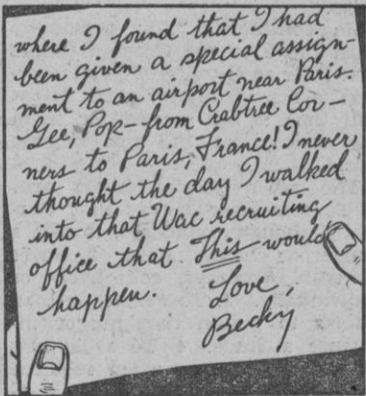 where I found that I had
been given a special assign-
ment to an airport near Paris.
Gee, Pop-from Crabtree Cor-
ners to Paris, France! I never
thought the day I walked
into that Wac recruiting
office that This would
happen.
Love,
Becky